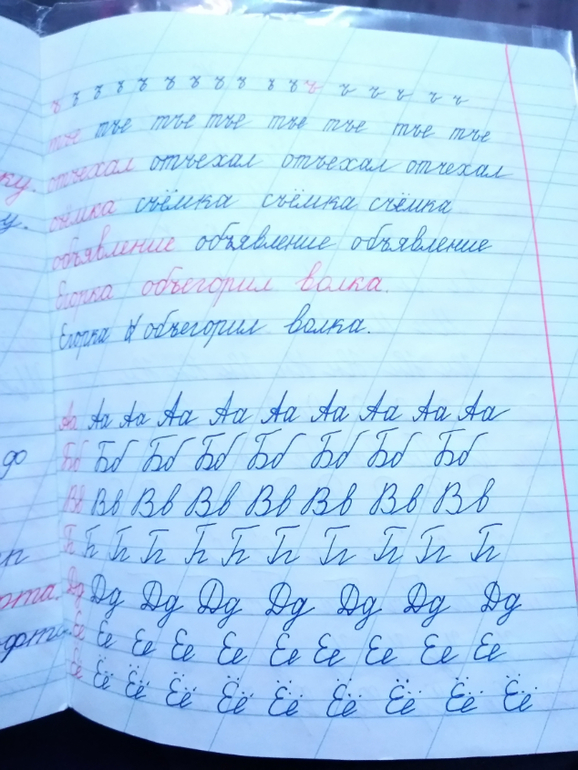 ъ ъ ъ ъ ъ ъ ъ ъ ъ ъ ъ ъ ъ ъ ъ ъ ъ
тъе тъе тъе тъе тъе тъе тъе тъе
отъехал отъехал отъехал отъехал
съёмка съёмка съёмка съёмка
объявление объявление объявление
Егорка объегорил волка.
Егорка объегорил волка.
Аа Аа Аа Аа Аа Аа Аа Аа Аа Аа
Бб Бб Бб Бб Бб Бб Бб Бб
Вв Вв Вв Вв Вв Вв Вв Вв
Гг Гг Гг Гг Гг Гг Гг Гг Гг Гг
Дд Дд Дд Дд Дд Дд Дд Дд
Ее Ее Ее Ее Ее Ее Ее Ее Ее
Ёё Ёё Ёё Ёё Ёё Ёё Ёё Ёё Ёё Ёё